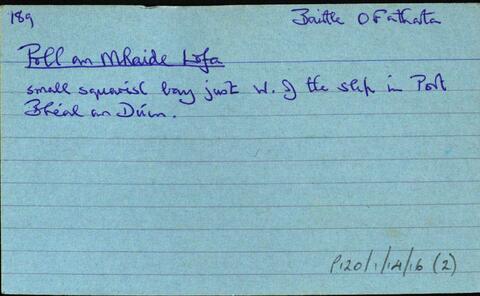 189
Baittle O Fatharta
Poll an Mhaide Lofa
small squarish bay just W. of the slip in Port
Bhéal an Dúin.
P120/1/14/16 (2)